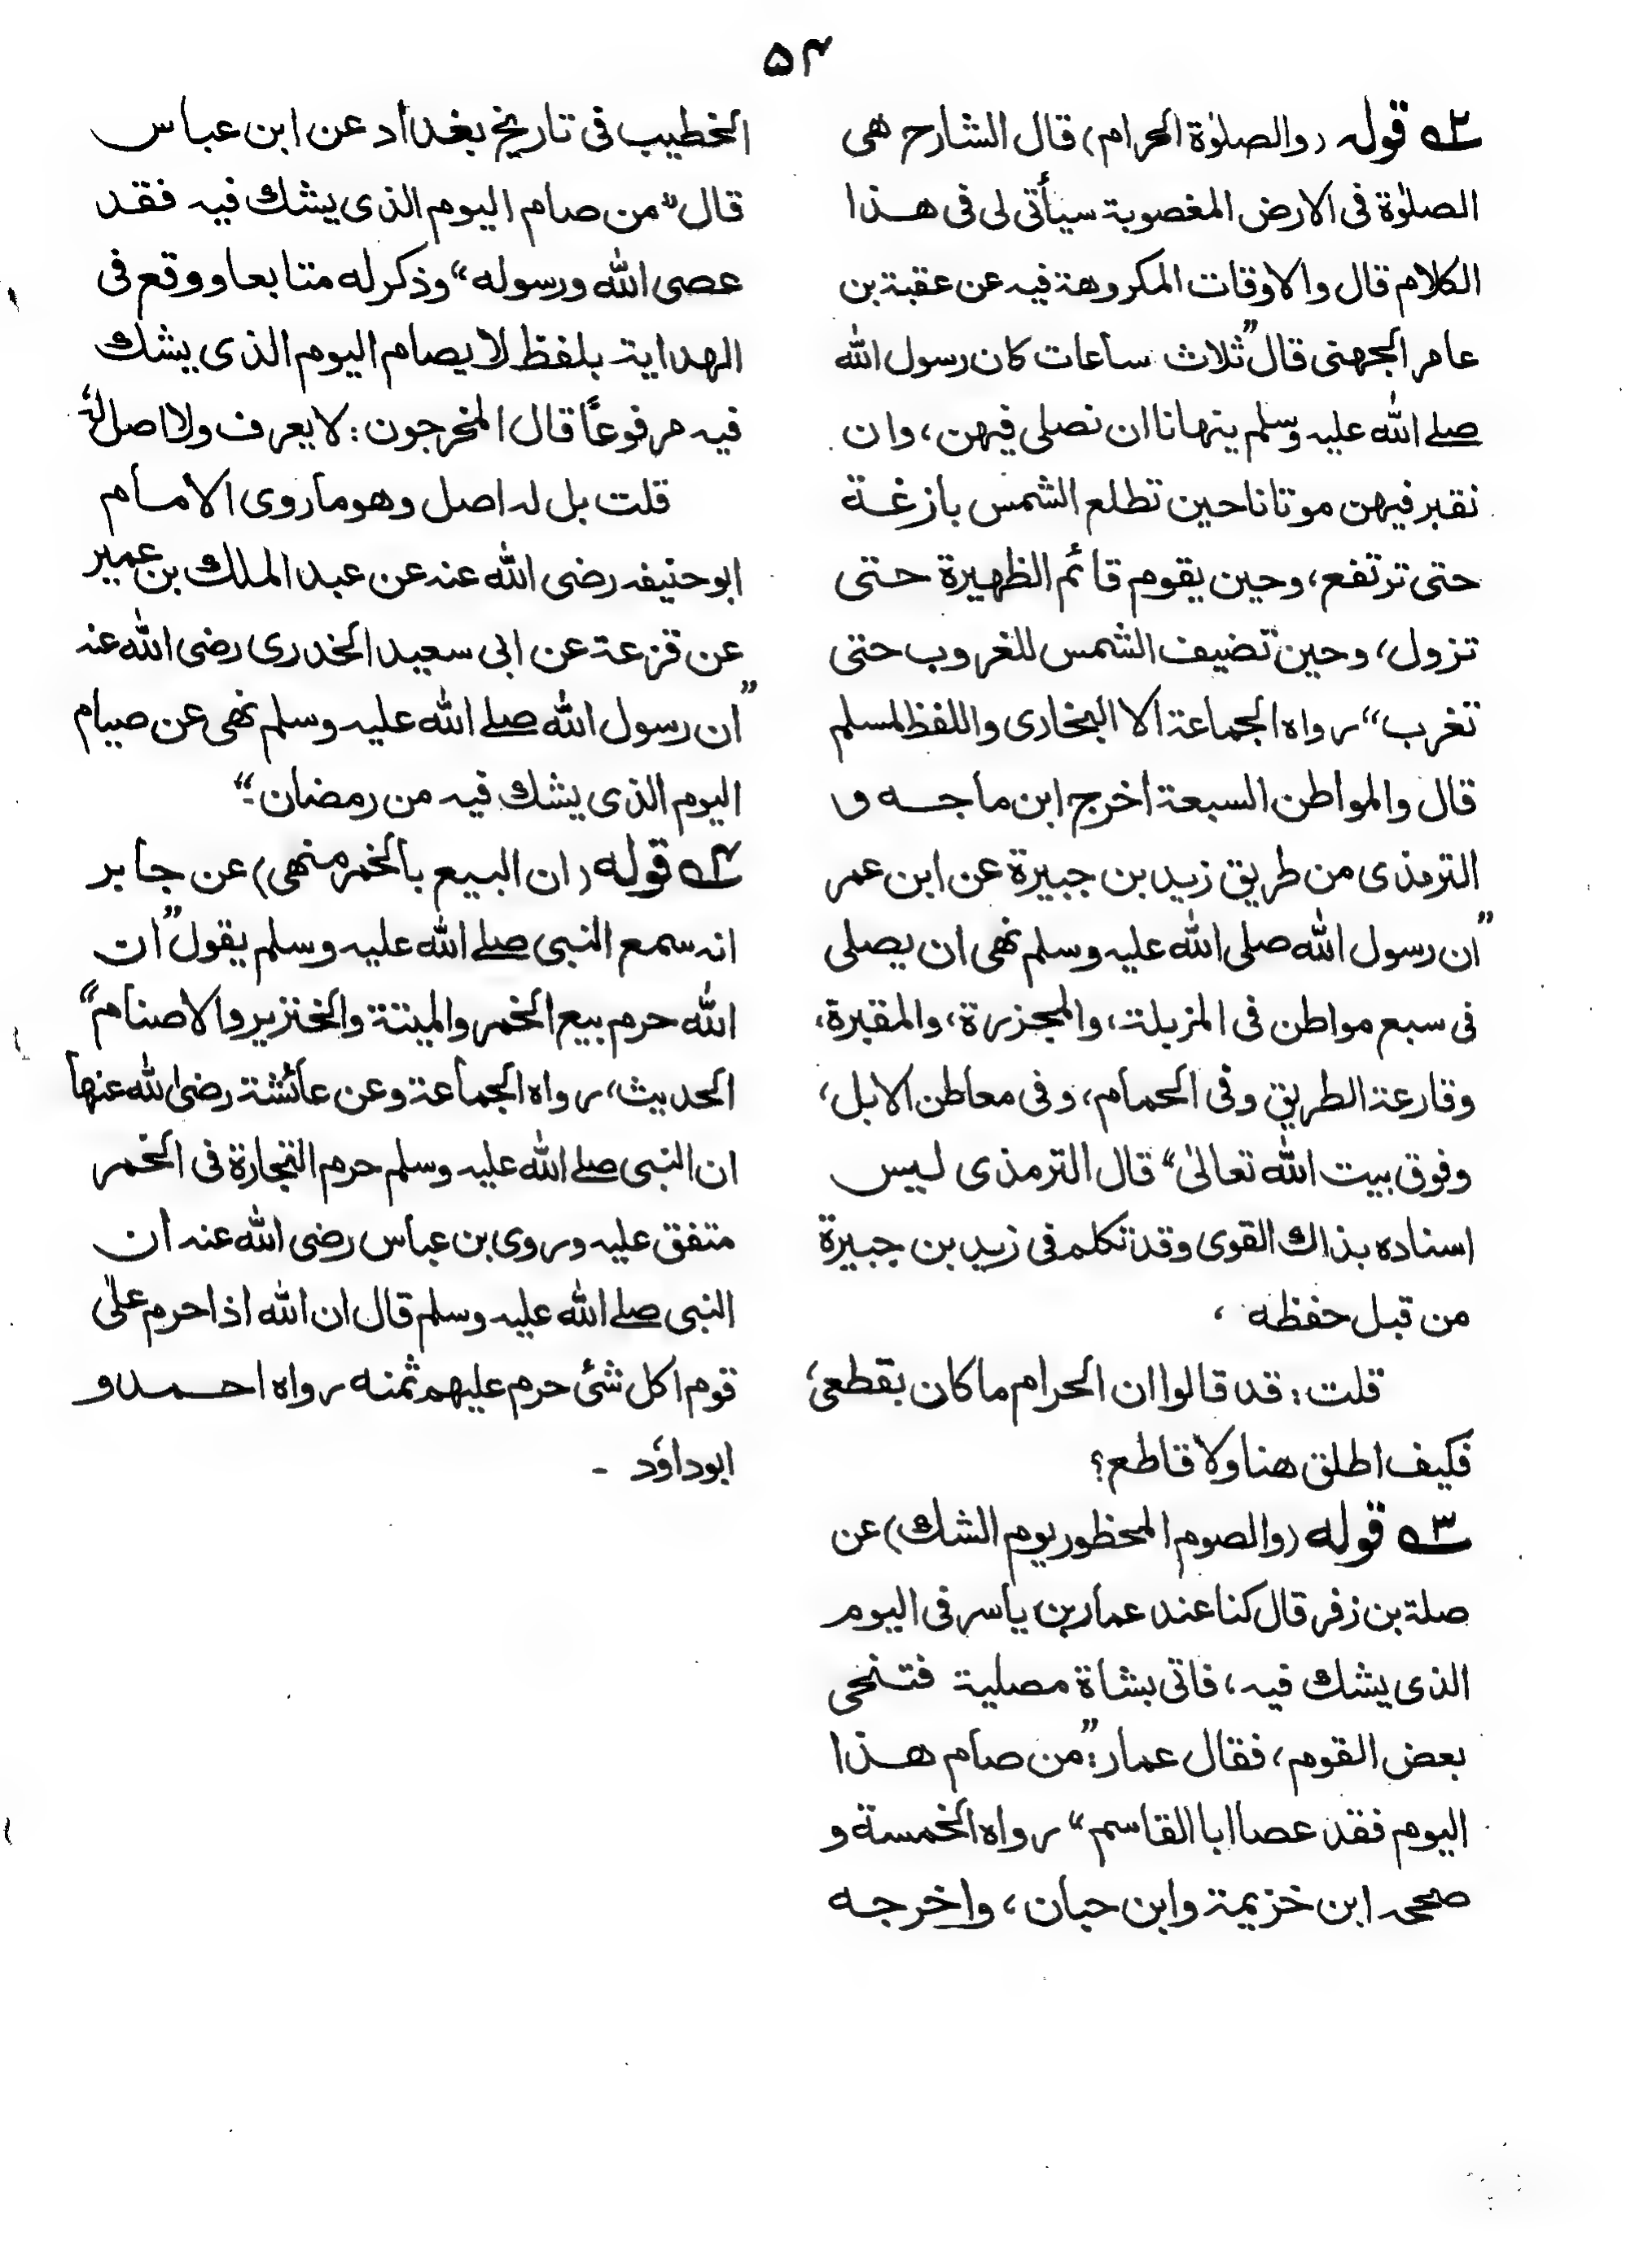 ۵۴
۲ قوله (والصلوٰة الحرام) قال الشارح هى
الصلوٰة فى الارض المغصوبة سيأتى لى فى هذا
الكلام قال والاوقات المكروهة فيه عن عقبة بن
عامر الجهنى قال ”ثلاث ساعات كان رسول الله
صلے الله عليه وسلم ينهانا ان نصلى فيهن، وان
نقبر فيهن موتانا حين تطلع الشمس بازغة
حتى ترتفع، وحين يقوم قائم الظهيرة حتى
تزول، وحين تضيف الشمس للغروب حتى
تغرب“ رواه الجماعة الا البخارى واللفظ لمسلم
قال والمواطن السبعة اخرج ابن ماجه و
الترمذى من طريق زيد بن جبيرة عن ابن عمر
”ان رسول الله صلى الله عليه وسلم نهى ان يصلى
فى سبع مواطن فى المزبلة، والمجزرة، والمقبرة،
وقارعة الطريق وفى الحمام، وفى معاطن الابل،
وفوق بيت الله تعالىٰ“ قال الترمذى ليس
اسناده بذاك القوى وقد تكلم فى زيد بن جبيرة
من قبل حفظه ،
قلت: قد قالوا ان الحرام ما كان بقطعى،
فكيف اطلق هنا ولا قاطع؟
۳ قوله (والصوم المحظور يوم الشك) عن
صلة بن زفر قال كنا عند عمار بن ياسر فى اليوم
الذى يشك فيه، فاتى بشاة مصلية فتنحى
بعض القوم، فقال عمار: ”من صام هذا
اليوم فقد عصا ابا القاسم“ رواه الخمسة و
صححه ابن خزيمة وابن حبان، واخرجه
الخطيب فى تاريخ بغداد عن ابن عباس
قال ”من صام اليوم الذى يشك فيه فقد
عصى الله ورسوله“ وذكر له متابعا ووقع فى
الهداية بلفظ لا يصام اليوم الذى يشك
فيه مرفوعًا قال المخرجون: لا يعرف ولا اصل له،
قلت بل له اصل وهو ما روى الامام
ابو حنيفه رضى الله عنه عن عبد الملك بن عمير
عن قزعة عن ابى سعيد الخدرى رضى الله عنه
”ان رسول الله صلے الله عليه وسلم نهى عن صيام
اليوم الذى يشك فيه من رمضان۔“
۴ قوله (ان البيع بالخمر منهى) عن جابر
انه سمع النبى صلے الله عليه وسلم يقول ”ان
الله حرم بيع الخمر والميتة والخنزير والاصنام“
الحديث، رواه الجماعة وعن عائشة رضى الله عنها
ان النبى صلے الله عليه وسلم حرم التجارة فى الخمر
متفق عليه وروى بن عباس رضى الله عنه ان
النبى صلے الله عليه وسلم قال ان الله اذا حرم علىٰ
قوم اكل شئ حرم عليهم ثمنه رواه احمد و
ابوداؤد ۔